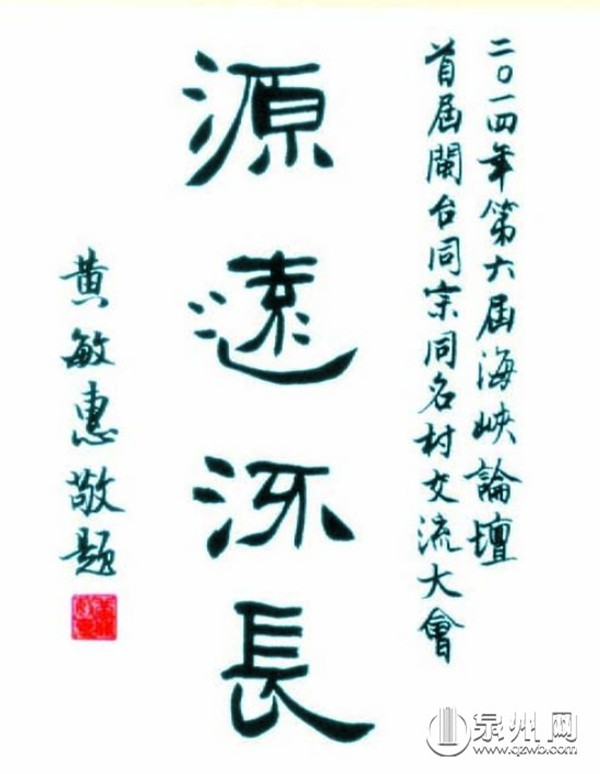 二〇一四年第六屆海峽論壇
首屆閩台同宗同名村交流大會
源遠流長
黄敏惠敬題
泉州网
www.qzwb.com